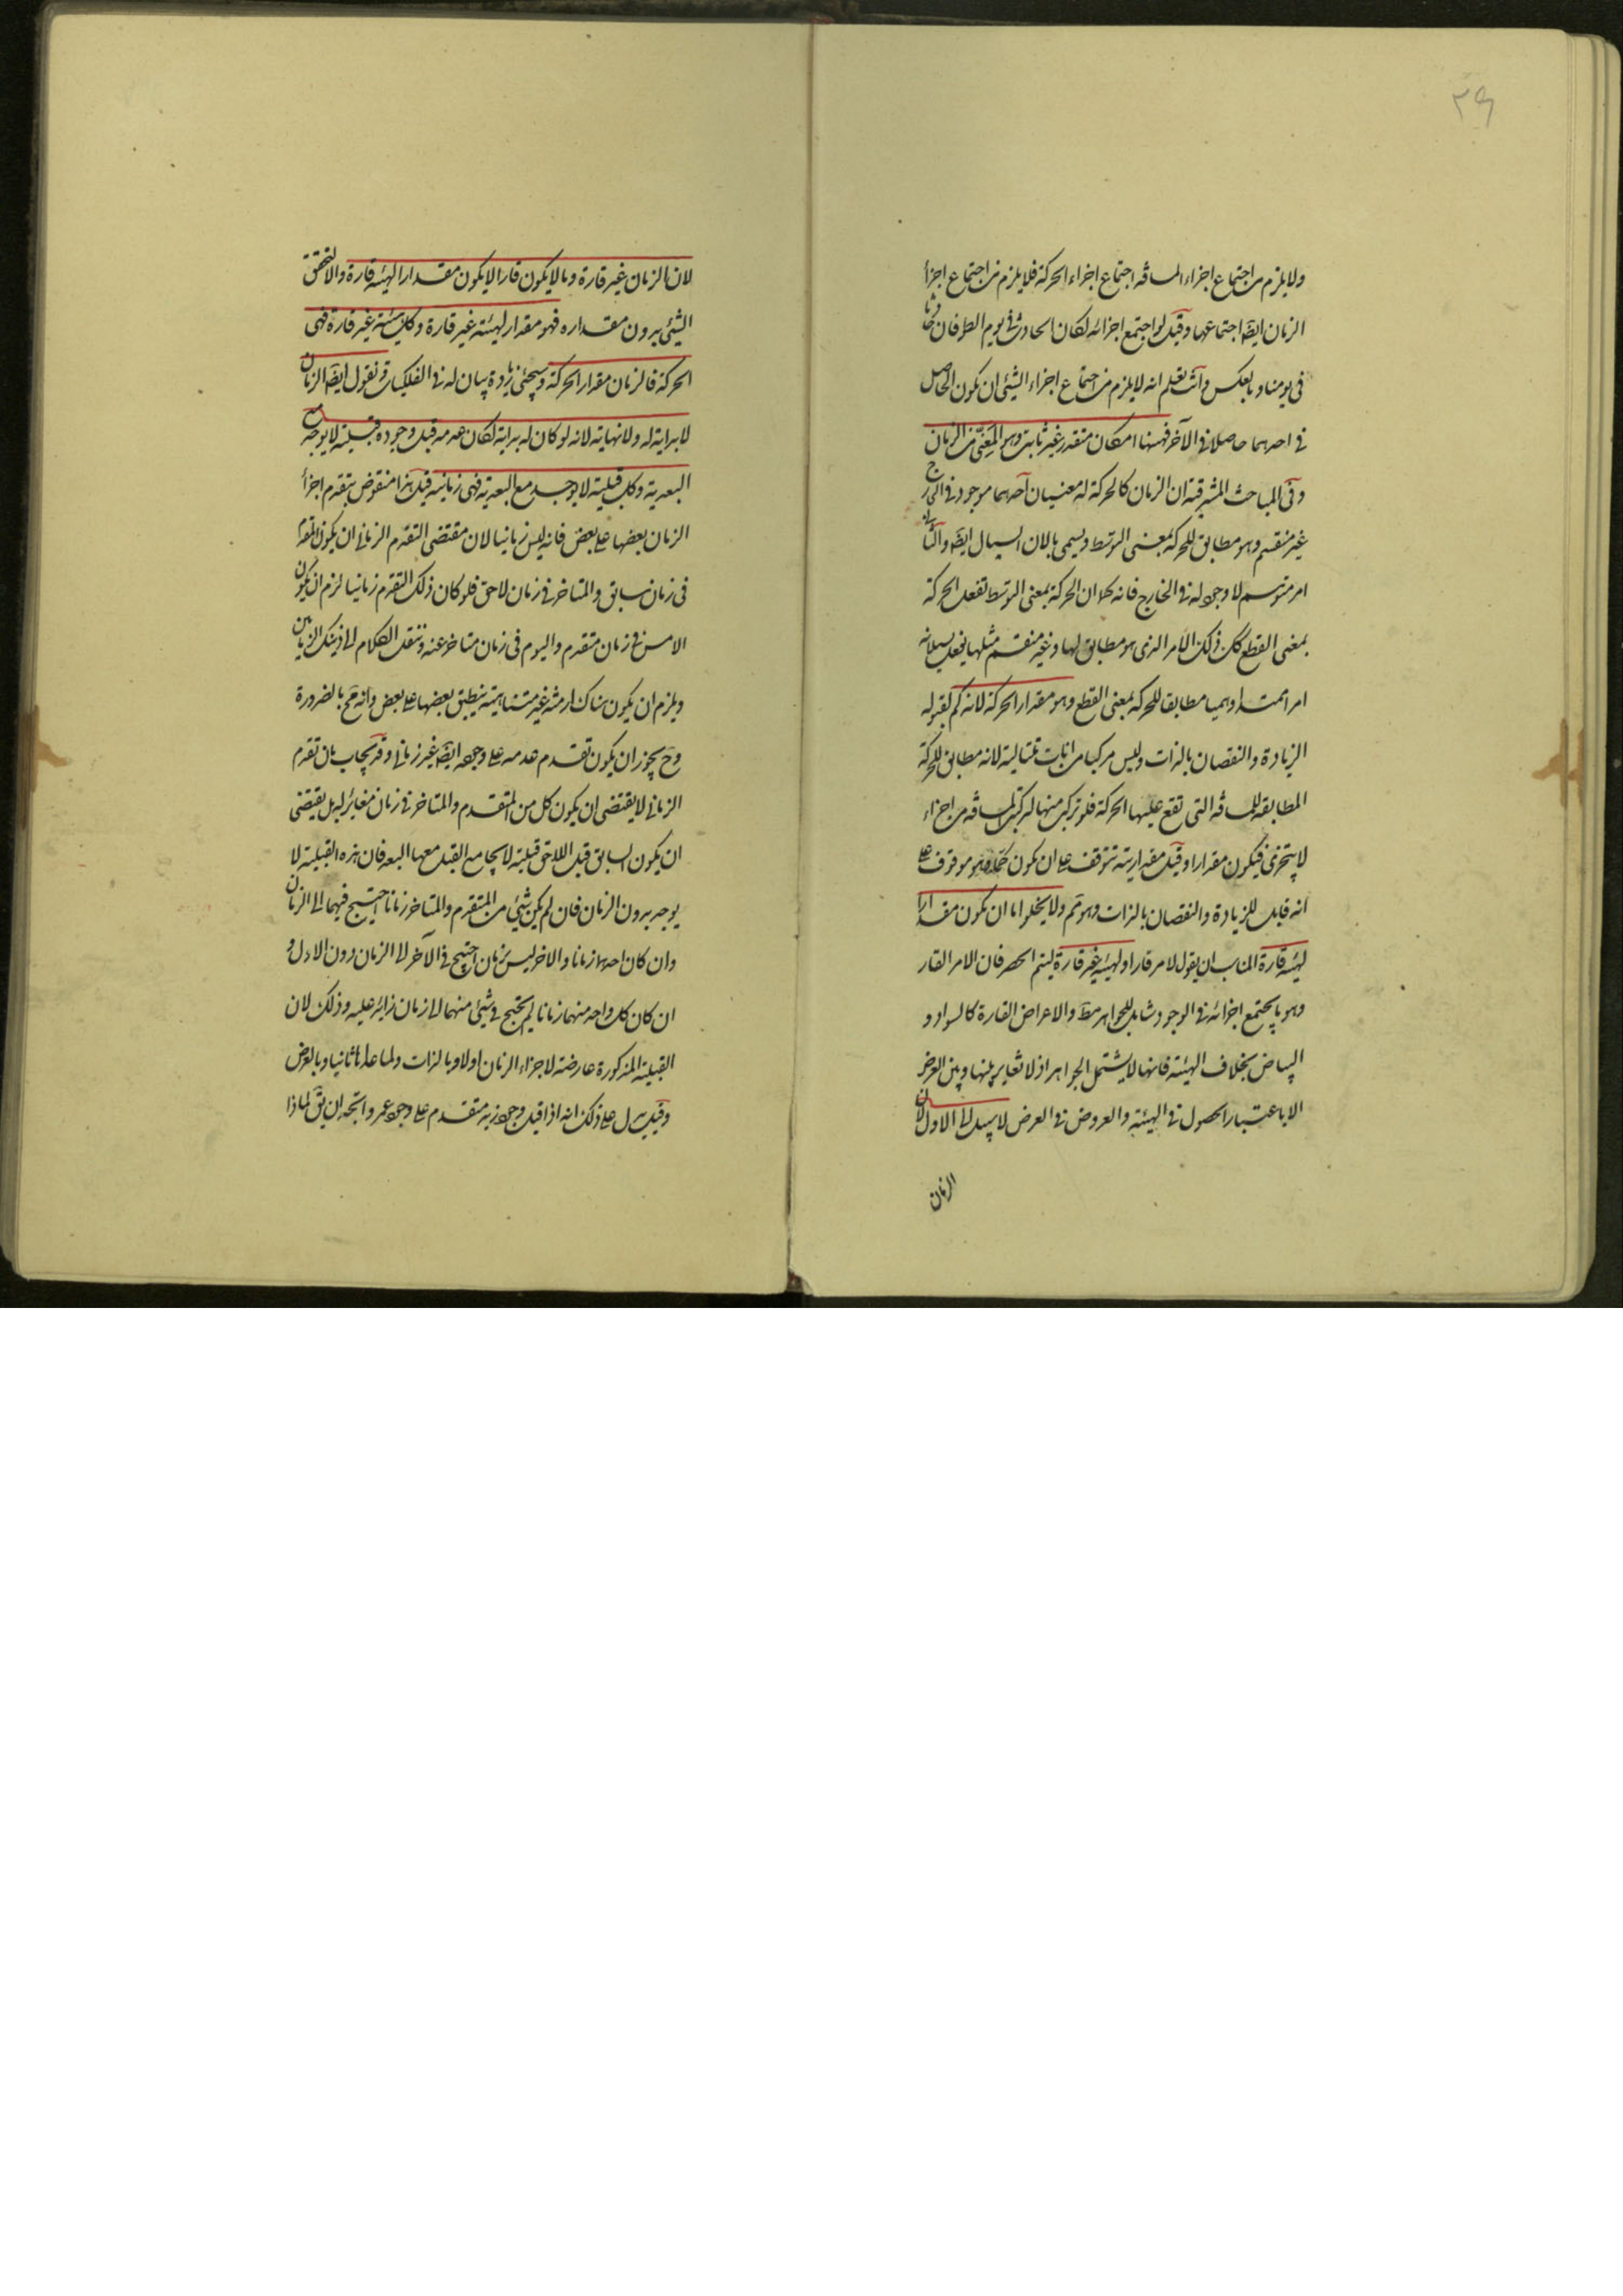 ٣٩
ولا يلزم من اجتماع اجزاء المسافة اجتماع اجزاء الحركة فلا يلزم من اجتماع اجزأ
الزمان ايضا اجتماعهما وقيل لو اجتمع اجزائه لكان الحادث في يوم الطوفان حادثا
في يومنا وبالعكس وانت تعلم انه لا يلزم من اجتماع اجزاء الشئ ان يكون الحاصل
في احدهما حاصلا في الآخر فههنا امكان متقدر غير ثابت وهو المعنى من الزمان
وفي المباحث المشرقية ان الزمان كالحركة له معنيان احدهما موجود في الخارج
غير منقسم وهو مطابق للحركة بمعنى التوسط ويسمى بالان السيال ايضا والثاني
امر متوهم لا وجود له في الخارج فانه كما ان الحركة بمعنى التوسط تفعل الحركة
بمعنى القطع كك ذلك الامر الذى هو مطابق لها وغير منقسم مثلها يفعل بسيلانه
امرا ممتدا وهميا مطابقا للحركة بمعنى القطع وهو مقدار الحركة لانه كم لقبوله
الزيادة والنقصان بالذات وليس مركبا من انات متتالية لانه مطابق للحركة
المطابقة للمسافة التى تقع عليها الحركة فلو تركب منها لتركب المسافة من اجزاء
لا يتجزى فيكون مقدارا وقيل مقداريته تتوقف على ان يكون هو موقوف على
انه قابل للزيادة والنقصان بالذات وهو ثم ولا يخلو اما ان يكون مقدارا
لهيئة قارة المناسب ان يقول لامر قار او لهيئة غير قارة ليتم الحصر فان الامر القار
وهو ما يجتمع اجزائه في الوجود شامل للجواهر مط والاعراض القارة كالسواد و
البياض بخلاف الهيئة فانها لا يشتمل الجواهر اذ لا تغاير بينها وبين العرض
الا باعتبار الحصول في الهيئة والعروض في العرض لا سبيل الى الاول لان
الزمان
لان الزمان غير قارة وما لا يكون قارا لا يكون مقدارا لهيئة قارة والا لتحقق
الشئ بدون مقداره فهو مقدار لهيئة غير قارة وكل هيئة غير قارة فهى
الحركة فالزمان مقدار الحركة وسيجئ زيادة بيان له في الفلكيات ونقول ايضا الزمان
لا بداية له ولا نهاية له لانه لو كان له بداية لكان عدمه قبل وجوده قبلية لا يوجد مع
البعدية وكل قبلية لا يوجد مع البعدية فهى زمانية قيل هذا منقوض بتقدم اجزأ
الزمان بعضها على بعض فانه ليس زمانيا لان مقتضى التقدم الزمانى ان يكون المتقدم
في زمان سابق والمتاخر في زمان لاحق فلو كان ذلك التقدم زمانيا لزم ان يكون
الامس في زمان متقدم واليوم في زمان متاخر عنه وننقل الكلام الى ذينك الزمانين
ويلزم ان يكون هناك ازمنة غير متناهية ينطبق بعضها على بعض وانه مح بالضرورة
وح يجوز ان يكون تقدم عدمه على وجوده ايضا غير زمانى وقد يجاب بان تقدم
الزمانى لا يقتضى ان يكون كل من المتقدم والمتاخر في زمان مغاير له بل يقتضى
ان يكون السابق قبل اللاحق قبلية لا يجامع القبل معها البعد فان هذه القبلية لا
يوجد بدون الزمان فان لم يكن شئ من المتقدم والمتاخر زمانا احتيج فيهما الى الزمان
وان كان احدهما زمانا والاخر ليس بزمان احتيج في الآخر الى الزمان دون الاول و
ان كان كل واحد منهما زمانا لم يحتج في شئ منهما الى زمان زائد عليه وذلك لان
القبلية المذكورة عارضة لاجزاء الزمان اولا وبالذات ولما عداها ثانيا وبالعرض
وقيل يدل على ذلك انه اذا قيل وجود زيد متقدم على وجود عمرو اتجه ان يق لماذا